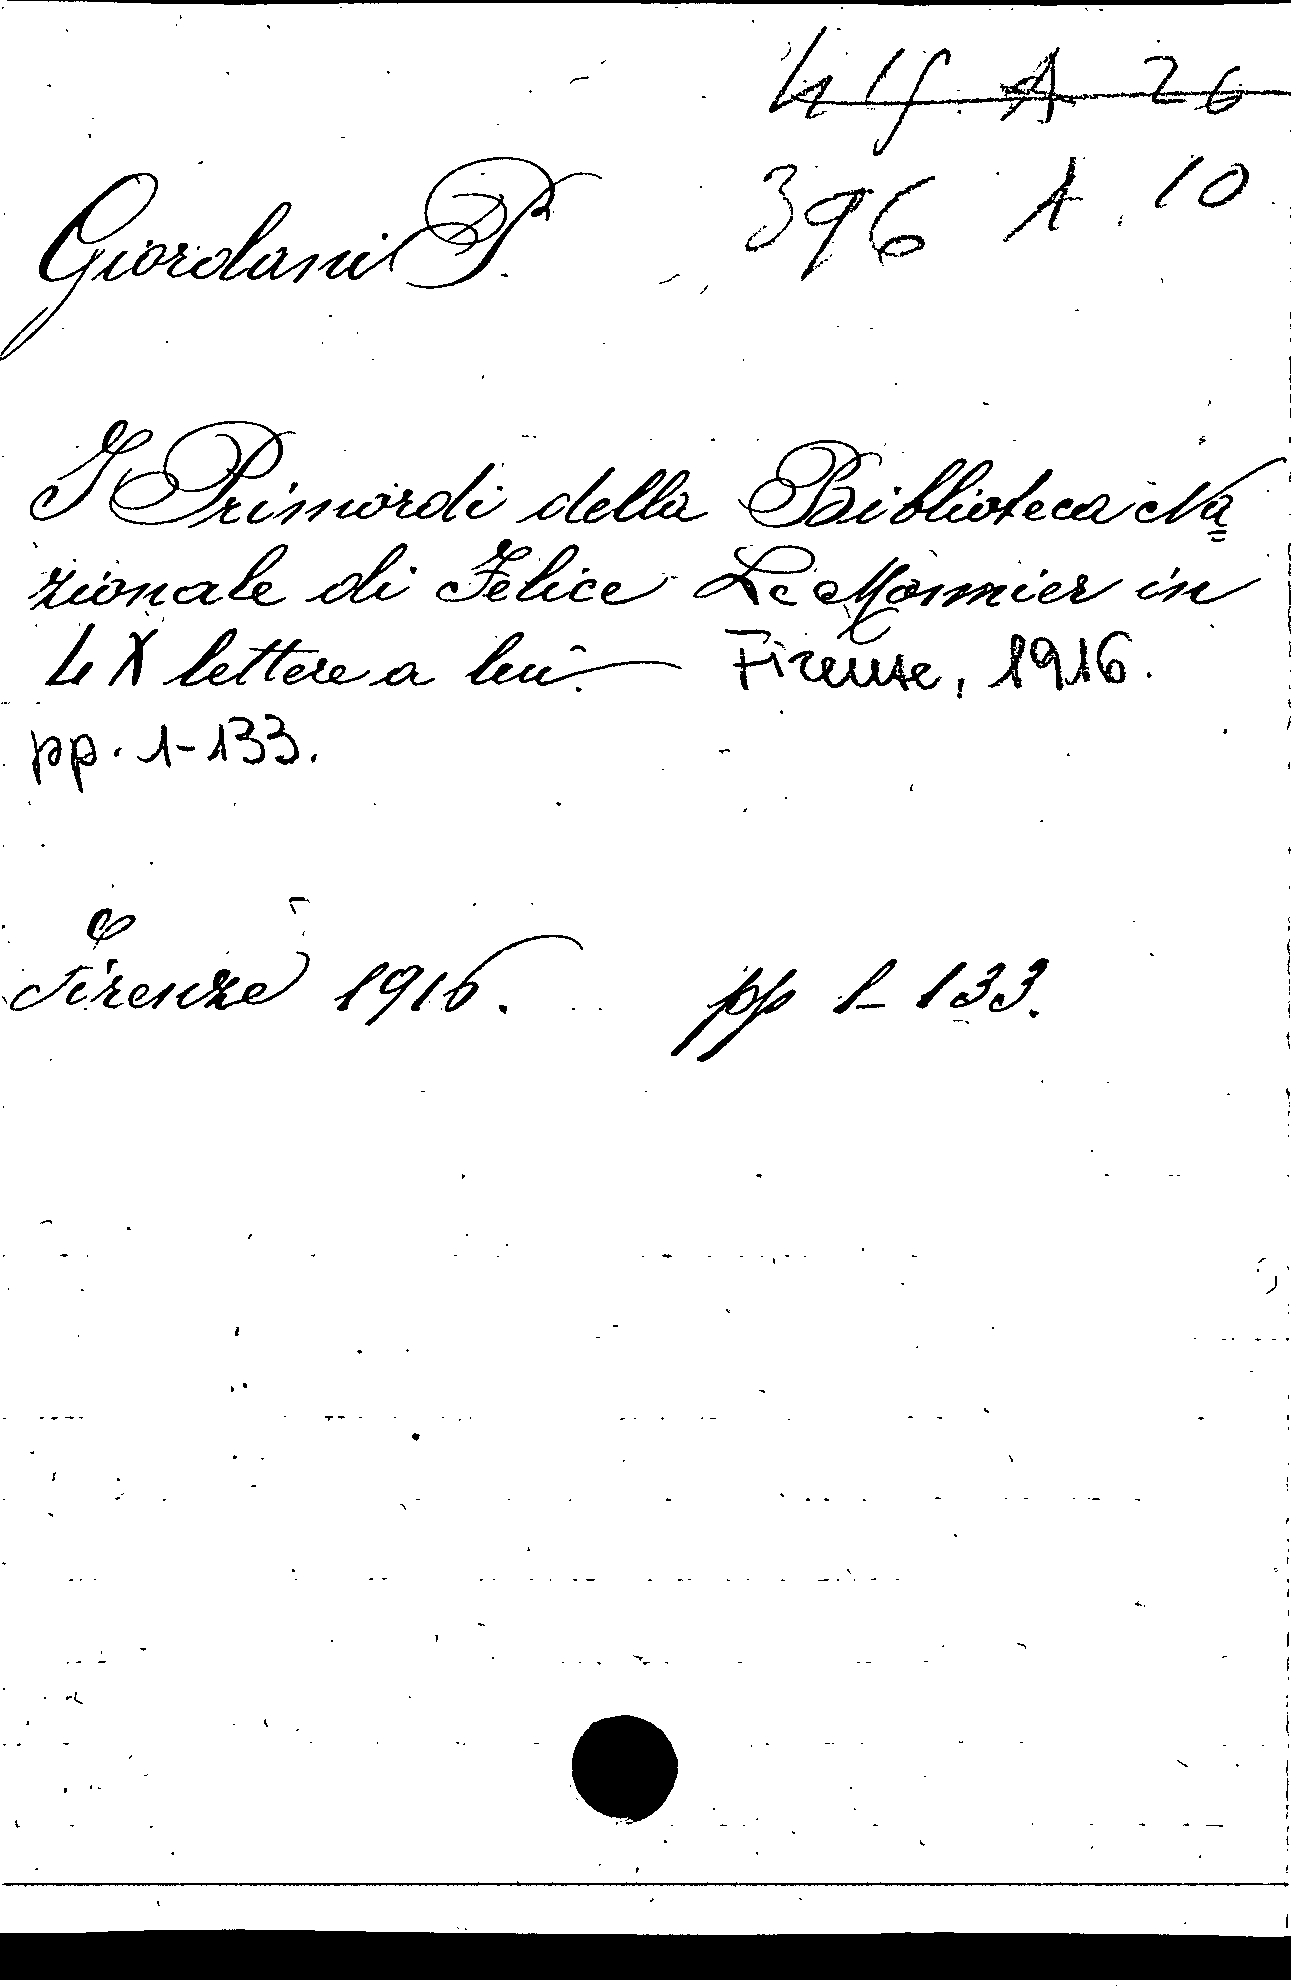 415 A 26
396 A. 10
Giordani P.
I Primordi della Biblioteca Na=
zionale di Felice Le Monnier in
LX lettere a lui. — Firenze, 1916.
pp. 1-133.
Firenze 1916. pp 1-133.